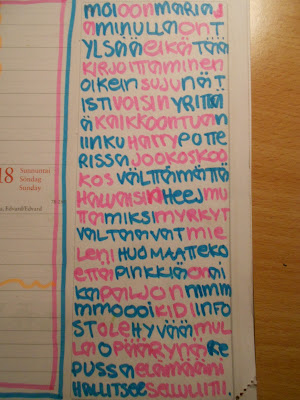 MOI OON MARIA J
A MINULLA ON T
YLSÄÄ EIKÄ TÄÄ
KIRJOITTAMINEN
OIKEIN SUJU NÄT
ISTI VOISIN YRITTÄ
Ä KAIKKOONTUA N
IINKU HARRY POTTE
RISSA JOO KOSKOO
KOS VÄLTTÄMÄTTÄ
HALUAISIN HEEJ MU
TTA MIKSI MYRKYT
VALTAAVAT MIE
LENI HUOMAATTEKO
ETTÄ PINKKIÄ ON AI
KA PALJON NIMM
MMOOOI KIDI INFO
ST OLE HYVÄÄ MUL
LA O PÄÄRYNÄ RE
PUSSA ELÄMÄÄNI
HALLITSEE SELLULIITTI
18 Sunnuntai
Söndag
Sunday
Edvard/Edvard